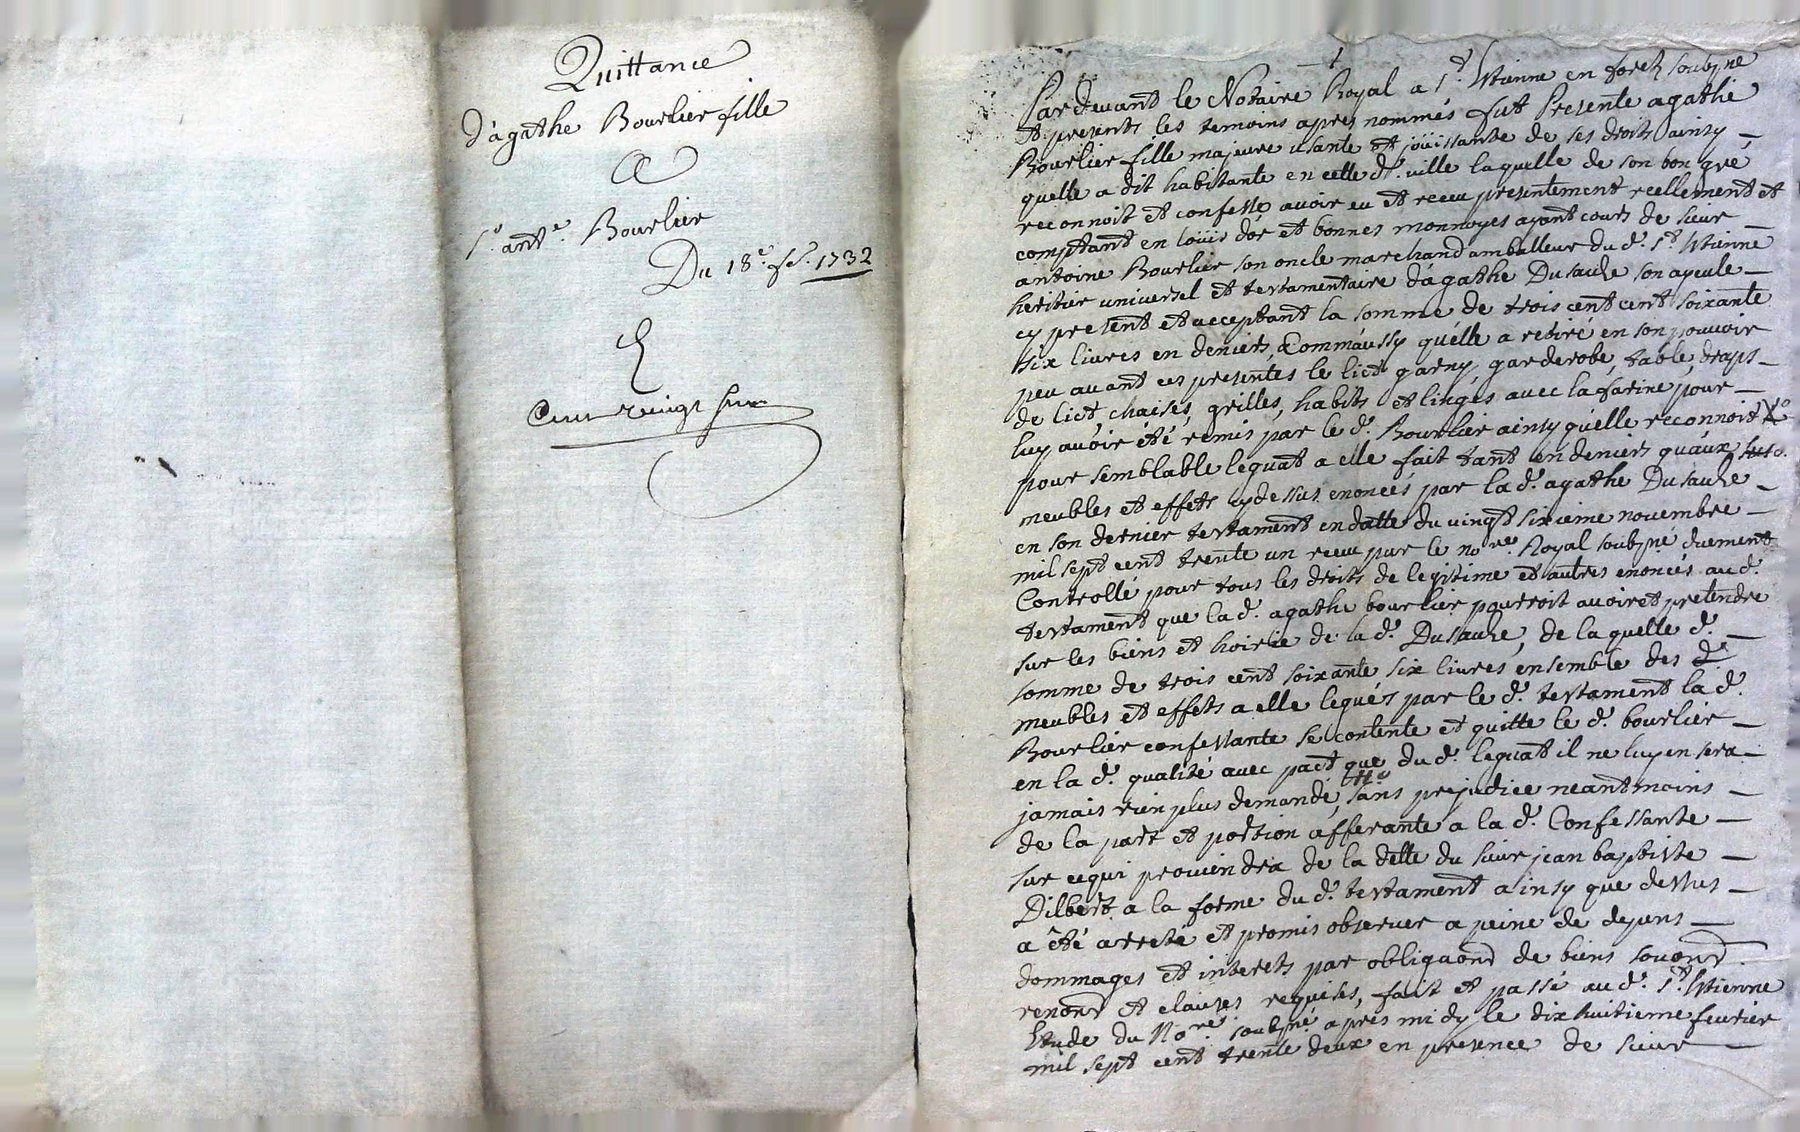 Quittance
d'agathe Bourlier fille
a
Sr. antne. Bourlier
Du 18e. fr. 1732
Cent vingt
Pardevant le Notaire Royal a St Etienne en forest soubsne
et presents les temoins apres nommés fut Presente agathe
Bourlier fille majeure usante et joüissante de ses droits ainsy
quelle a dit habitante en cette de. ville laquelle de son bon gré
reconnoit et confesse avoir eu et receu presentement reellement et
comptant en loüis dor et bonnes monnoyes ayant cours de sieur
antoine Bourlier son oncle marchand amballeur du d. St Etienne
heritier universel et testamentaire dagathe Dusauze son ayeule
cy present et acceptant la somme de trois cent cent soixante
six livres en deniers, Comm'aussy qu'elle a retiré en son pouvoir
peu avant ces presentes le lict garny garderobe, table, draps
de lict chaises, grilles, habits et linges avec la farine pour
luy avoir été remis par le d. Bourlier ainsy qu'elle reconnoit
pour semblable leguat a elle fait tant en deniers quaux
meubles et effets cydessus enoncés par la d. agathe Dusauze
en son dernier testament en datte du vingt sixieme novembre
mil sept cent trente un receu par le nore. Royal soubsne duement
Controllé pour tous les droits de legitime et autres enoncés au d.
testament que la d. agathe bourlier pourroit avoir et pretendre
sur les biens et hoirie de la d. Dusauze, de laquelle d.
somme de trois cent soixante six livres ensemble des d.
meubles et effets a elle legués par le d. testament la d.
Bourlier confessante se contente et quitte le d. bourlier
en la d. qualité avec pact que du d. leguat il ne luy en sera
jamais rien plus demandé, sans prejudice neantmoins
de la part et portion afferante a la d. Confessante
sur cequi proviendra de la dette du sieur jean baptiste
Dilbert a la forme du d. testament ainsy que dessus
a été arreté et promis observer a peine de depens
dommages et interets par obligaond de biens soûond
renond et clauses requises, fait et passé au d. St. Etienne
Etude du Nore. soubsné apres midy le dix huitieme fevrier
mil sept cent trente deux en presence de sieur